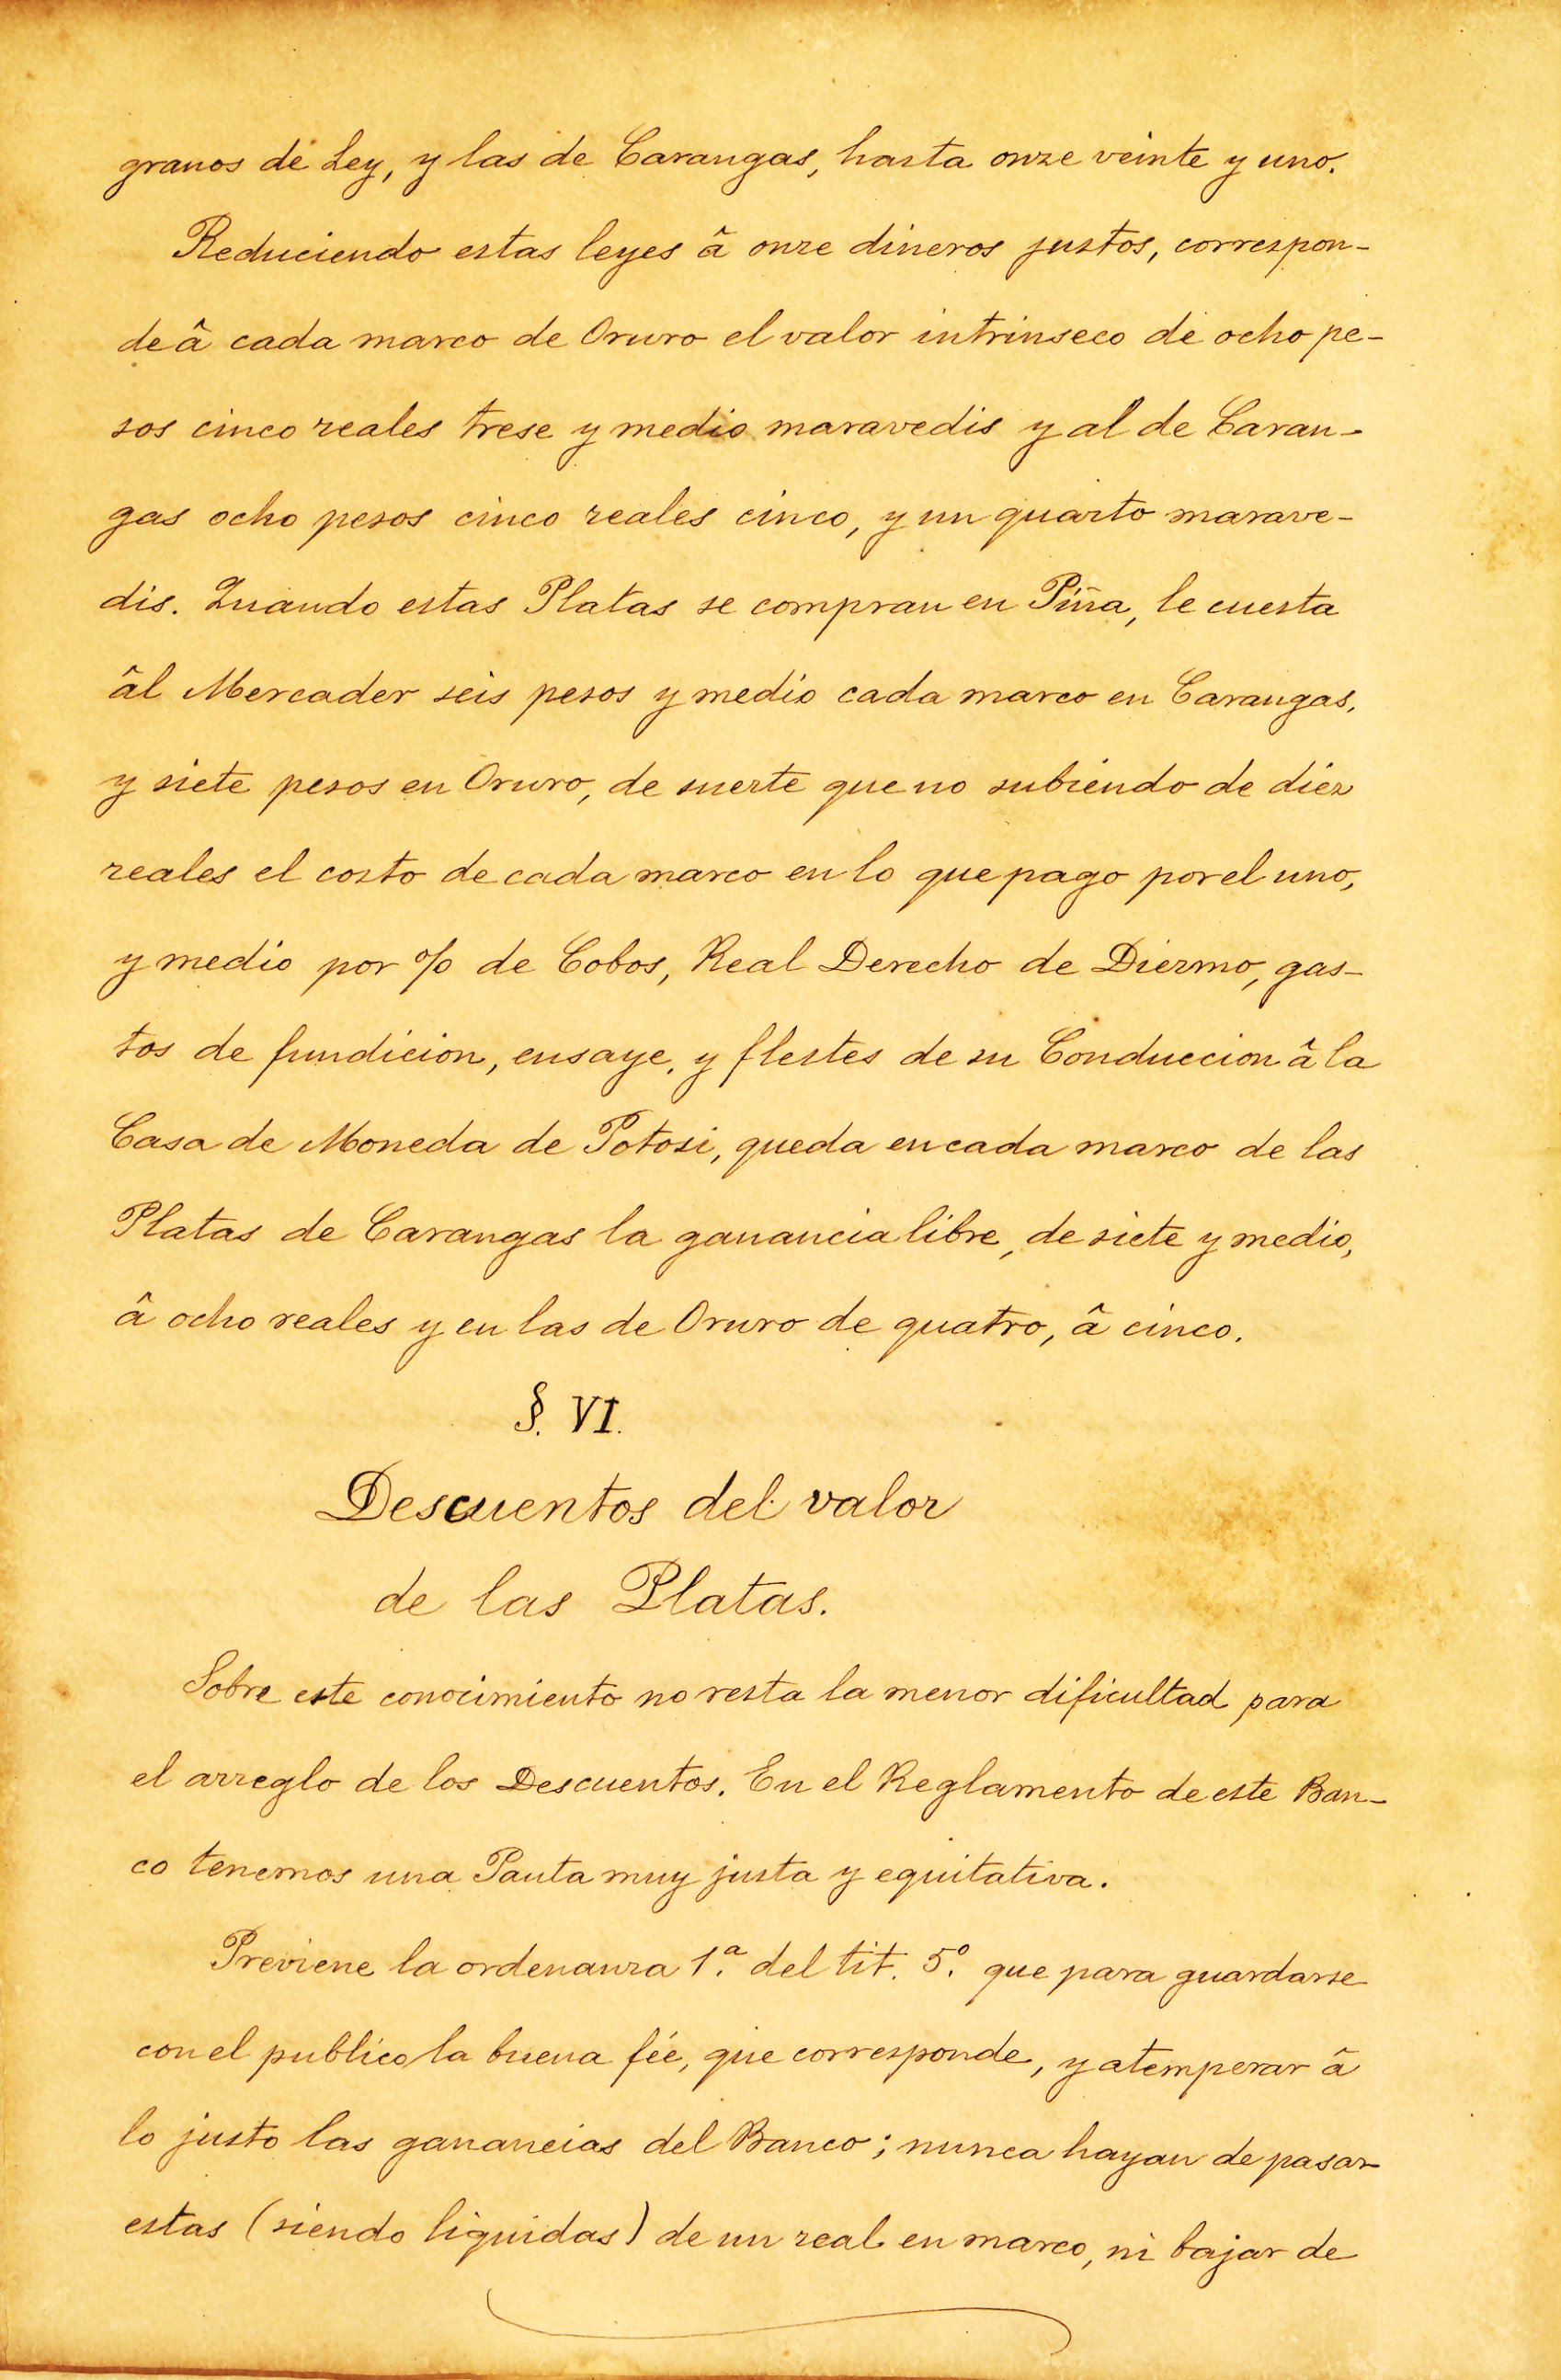 granos de Ley, y las de Carangas, hasta onze veinte y uno.
Reduciendo estas leyes â onze dineros justos, correspon-
de â cada marco de Oruro el valor intrinseco de ocho pe-
sos cinco reales trese y medio maravedis y al de Caran-
gas ocho pesos cinco reales cinco, y un quarto marave-
dis. Quando estas Platas se compran en Piña, le cuesta
âl Mercader seis pesos y medio cada marco en Carangas,
y siete pesos en Oruro, de suerte que no subiendo de diez
reales el costo de cada marco en lo que pago por el uno,
y medio por % de Cobos, Real Derecho de Diezmo, gas-
tos de fundicion, ensaye, y fletes de su Conduccion â la
Casa de Moneda de Potosi, queda en cada marco de las
Platas de Carangas la ganancia libre, de siete y medio,
â ocho reales y en las de Oruro de quatro, â cinco.
§. VI.
Descuentos del valor
de las Platas.
Sobre este conocimiento no resta la menor dificultad para
el arreglo de los Descuentos. En el Reglamento de este Ban-
co tenemos una Pauta muy justa y equitativa.
Previene la ordenanza 1.ª del tit. 5.º que para guardarse
con el publico la buena fée, que corresponde, y atemperar â
lo justo las ganancias del Banco; nunca hayan de pasar
estas (siendo liquidas) de un real en marco, ni bajar de